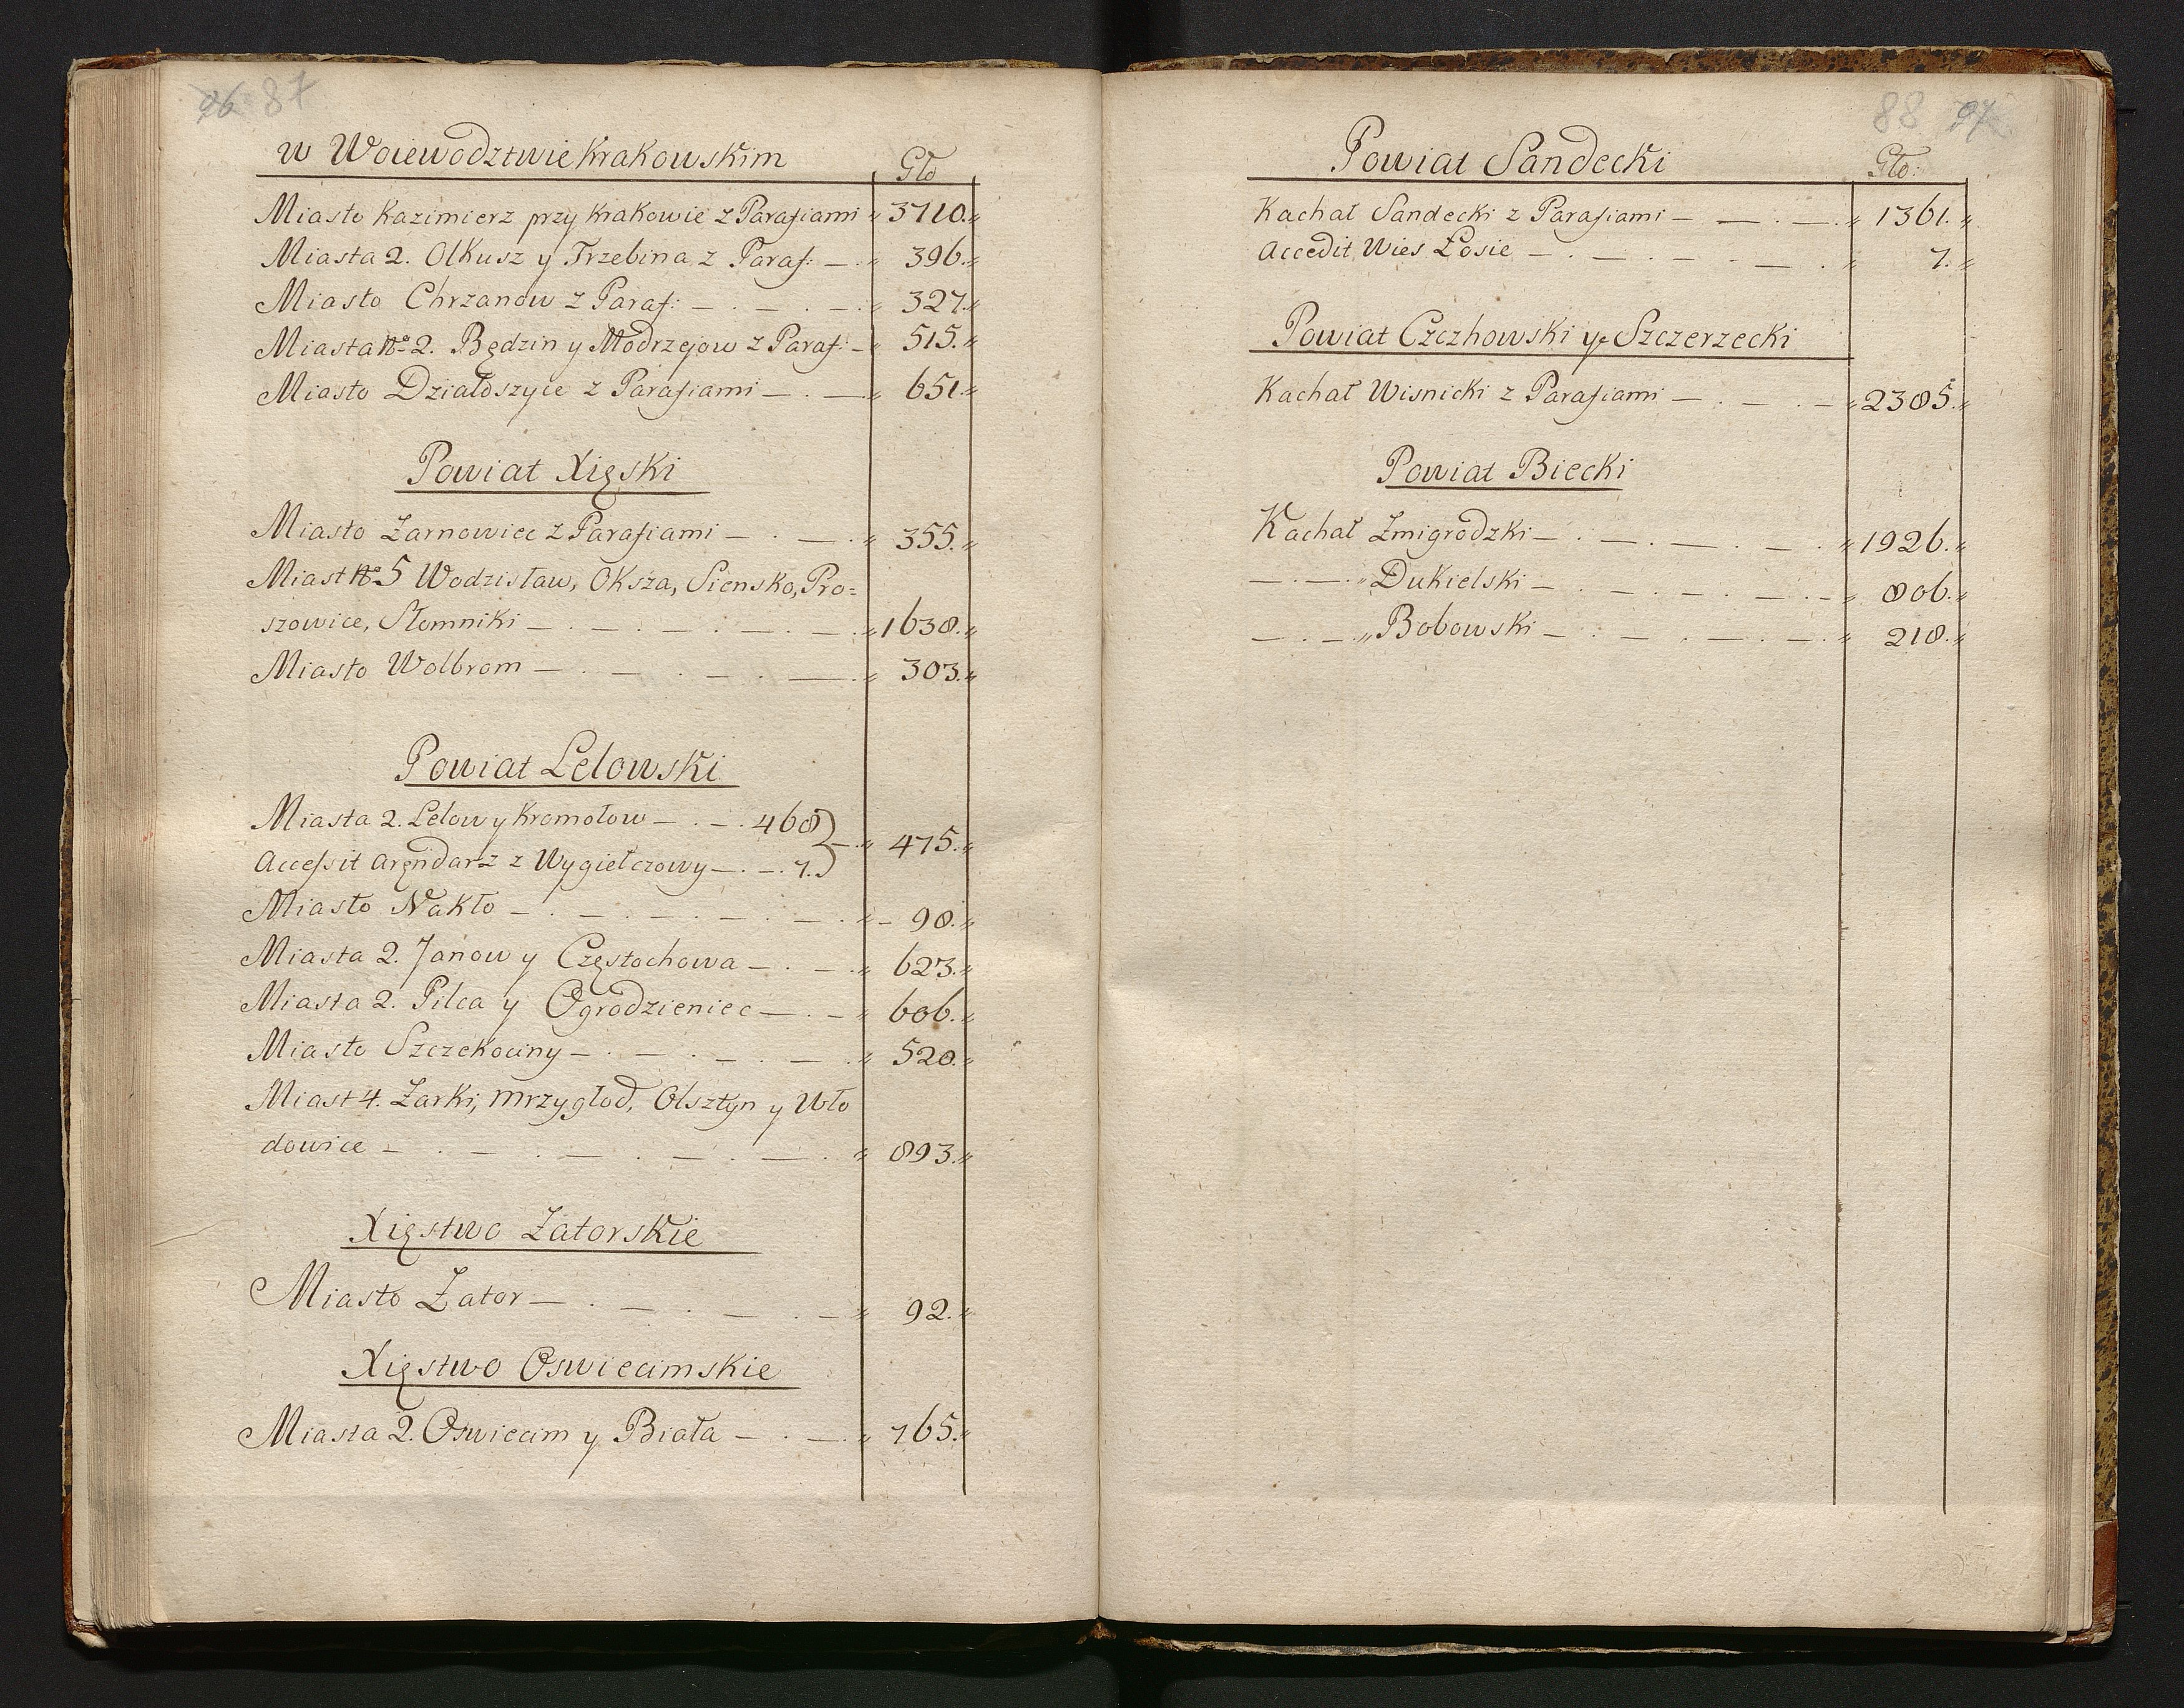 96 87
w Woiewodztwie Krakowskim Gło
Miasto Kazimierz przy Krakowie z Parafiami " 3710."
Miasta 2. Olkusz y Trzebina z Paraf: — " 396."
Miasto Chrzanow z Paraf: — . — . — " 327."
Miasta No 2. Będzin y Modrzejow z Paraf: — " 515."
Miasto Działoszyce z Parafiami — . — " 651."
Powiat Xięski
Miasto Żarnowiec z Parafiami — . — . " 355."
Miast No 5 Wodzisław, Oksza, Siensko, Pro=
szowice, Słomniki — . — . — . — . — . " 1638."
Miasto Wolbrom — . — . — . — . " 303."
Powiat Lelowski
Miasta 2. Lelow y Kromołow — . — . 468
Accessit arendarz z Wygiełczowy — . — . 7. } — " 475."
Miasto Nakło — . — . — . — . — . " 98."
Miasta 2. Janow y Częstochowa — . — . " 623."
Miasta 2. Pilca y Ogrodzieniec — . — " 606."
Miasto Szczekociny — . — . — . — . " 520."
Miast 4. Żarki, Mrzygłod, Olsztyn y Wło
dowice — . — . — . — . — . " 893."
Xięstwo Zatorskie
Miasto Zator — . — . — . — " 92."
Xięstwo Oswiecimskie
Miasta 2. Oswiecim y Biała — . — " 765."
88 97
Powiat Sandecki Gło:
Kachał Sandecki z Parafiami — — . — . " 1361."
Accedit Wies Łosie — . — . — . — . " 7."
Powiat Czczhowski y Szczerzecki
Kachał Wisnicki z Parafiami — . — . — " 2385."
Powiat Biecki
Kachał Żmigrodzki — . — . — . — . " 1926."
— . — . " Dukielski — . — . — . — . — " 806."
— . — . " Bobowski — . — . — . — . " 218."